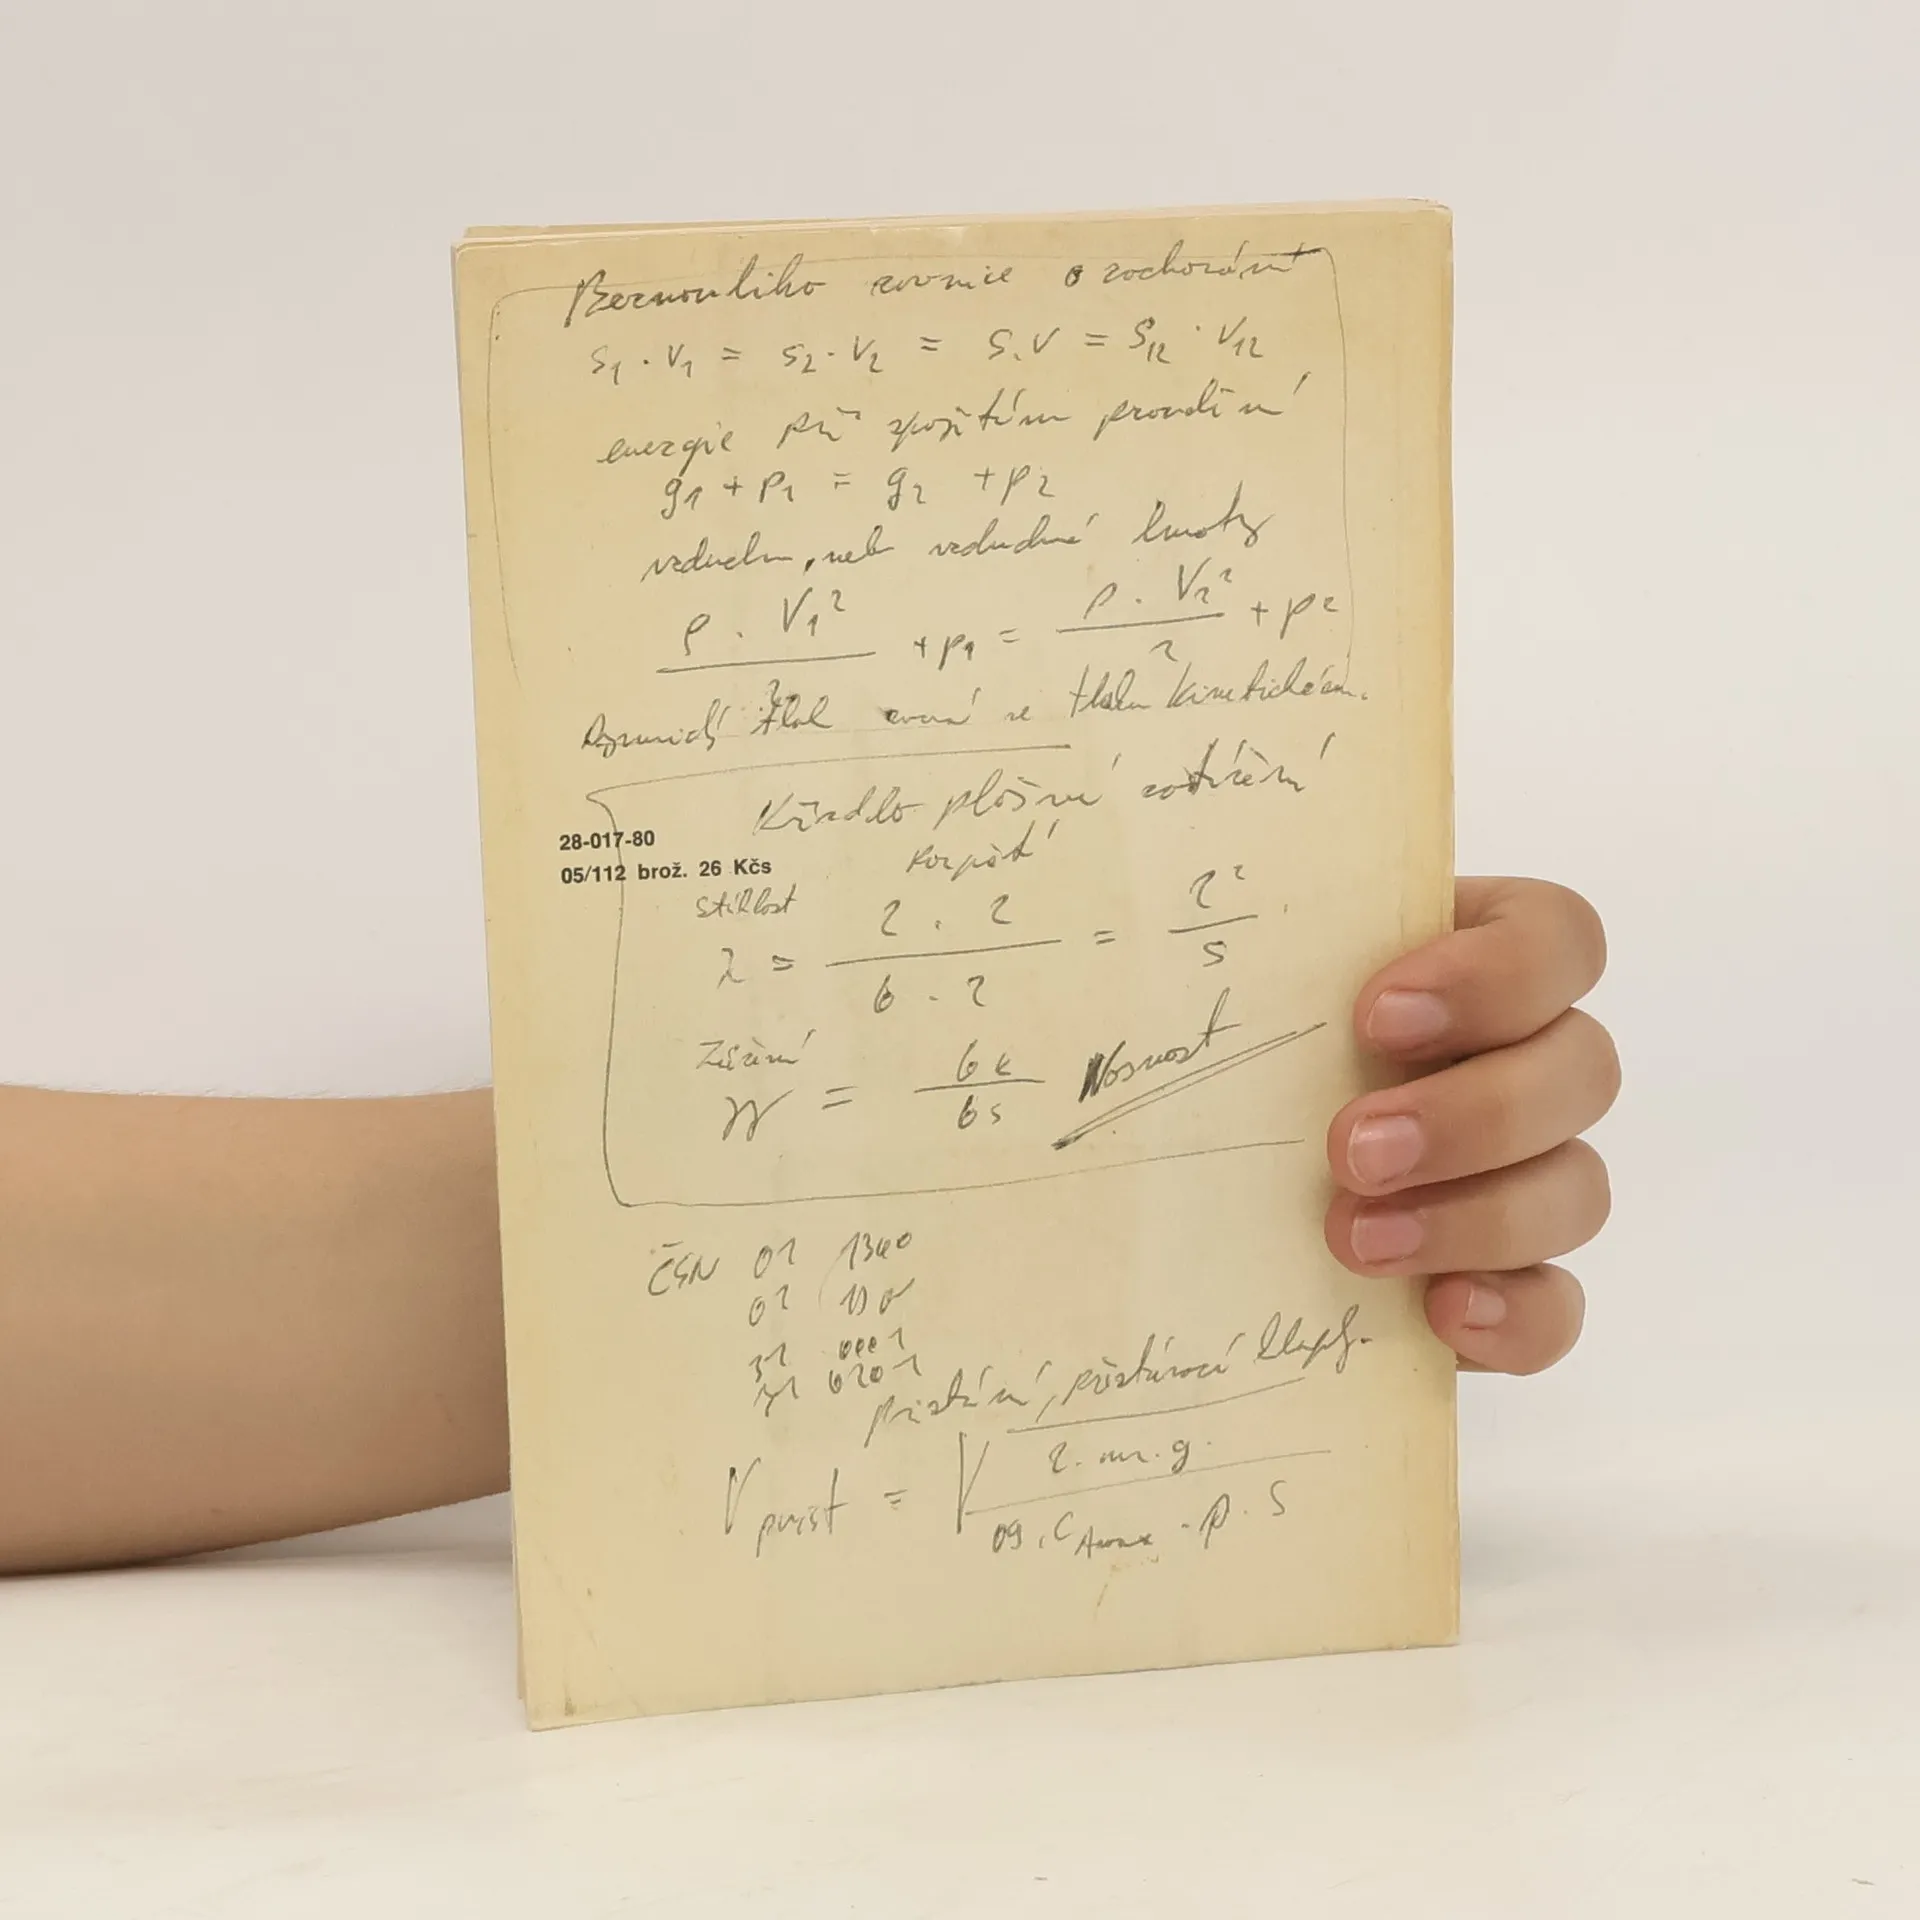 Bernouliho rovnice o zachování
S₁ · V₁ = S₂ · V₂ = S. V = S₁₂ · V₁₂
energie při spojitém proudění
g₁ + p₁ = g₂ + p₂
vzduchu, neb vzdušné hmoty
ρ . V₁² / 2 + p₁ = ρ . V₂² / 2 + p₂
Dynamický tlak rovná se tlaku kinetickém.
Křídlo plošné zatížení
28-017-80
rozpětí
05/112 brož. 26 Kčs
štíhlost
λ = 2 . 2 / 6 . 2 = 2² / S
Zúžení
= 6k / 6s Nosnost
ČSN 01 1340
01
31
31 0201
přistání, přistávací klapky.
V přist = √ 2 . m . g. / 09 . C Amax . ρ . S